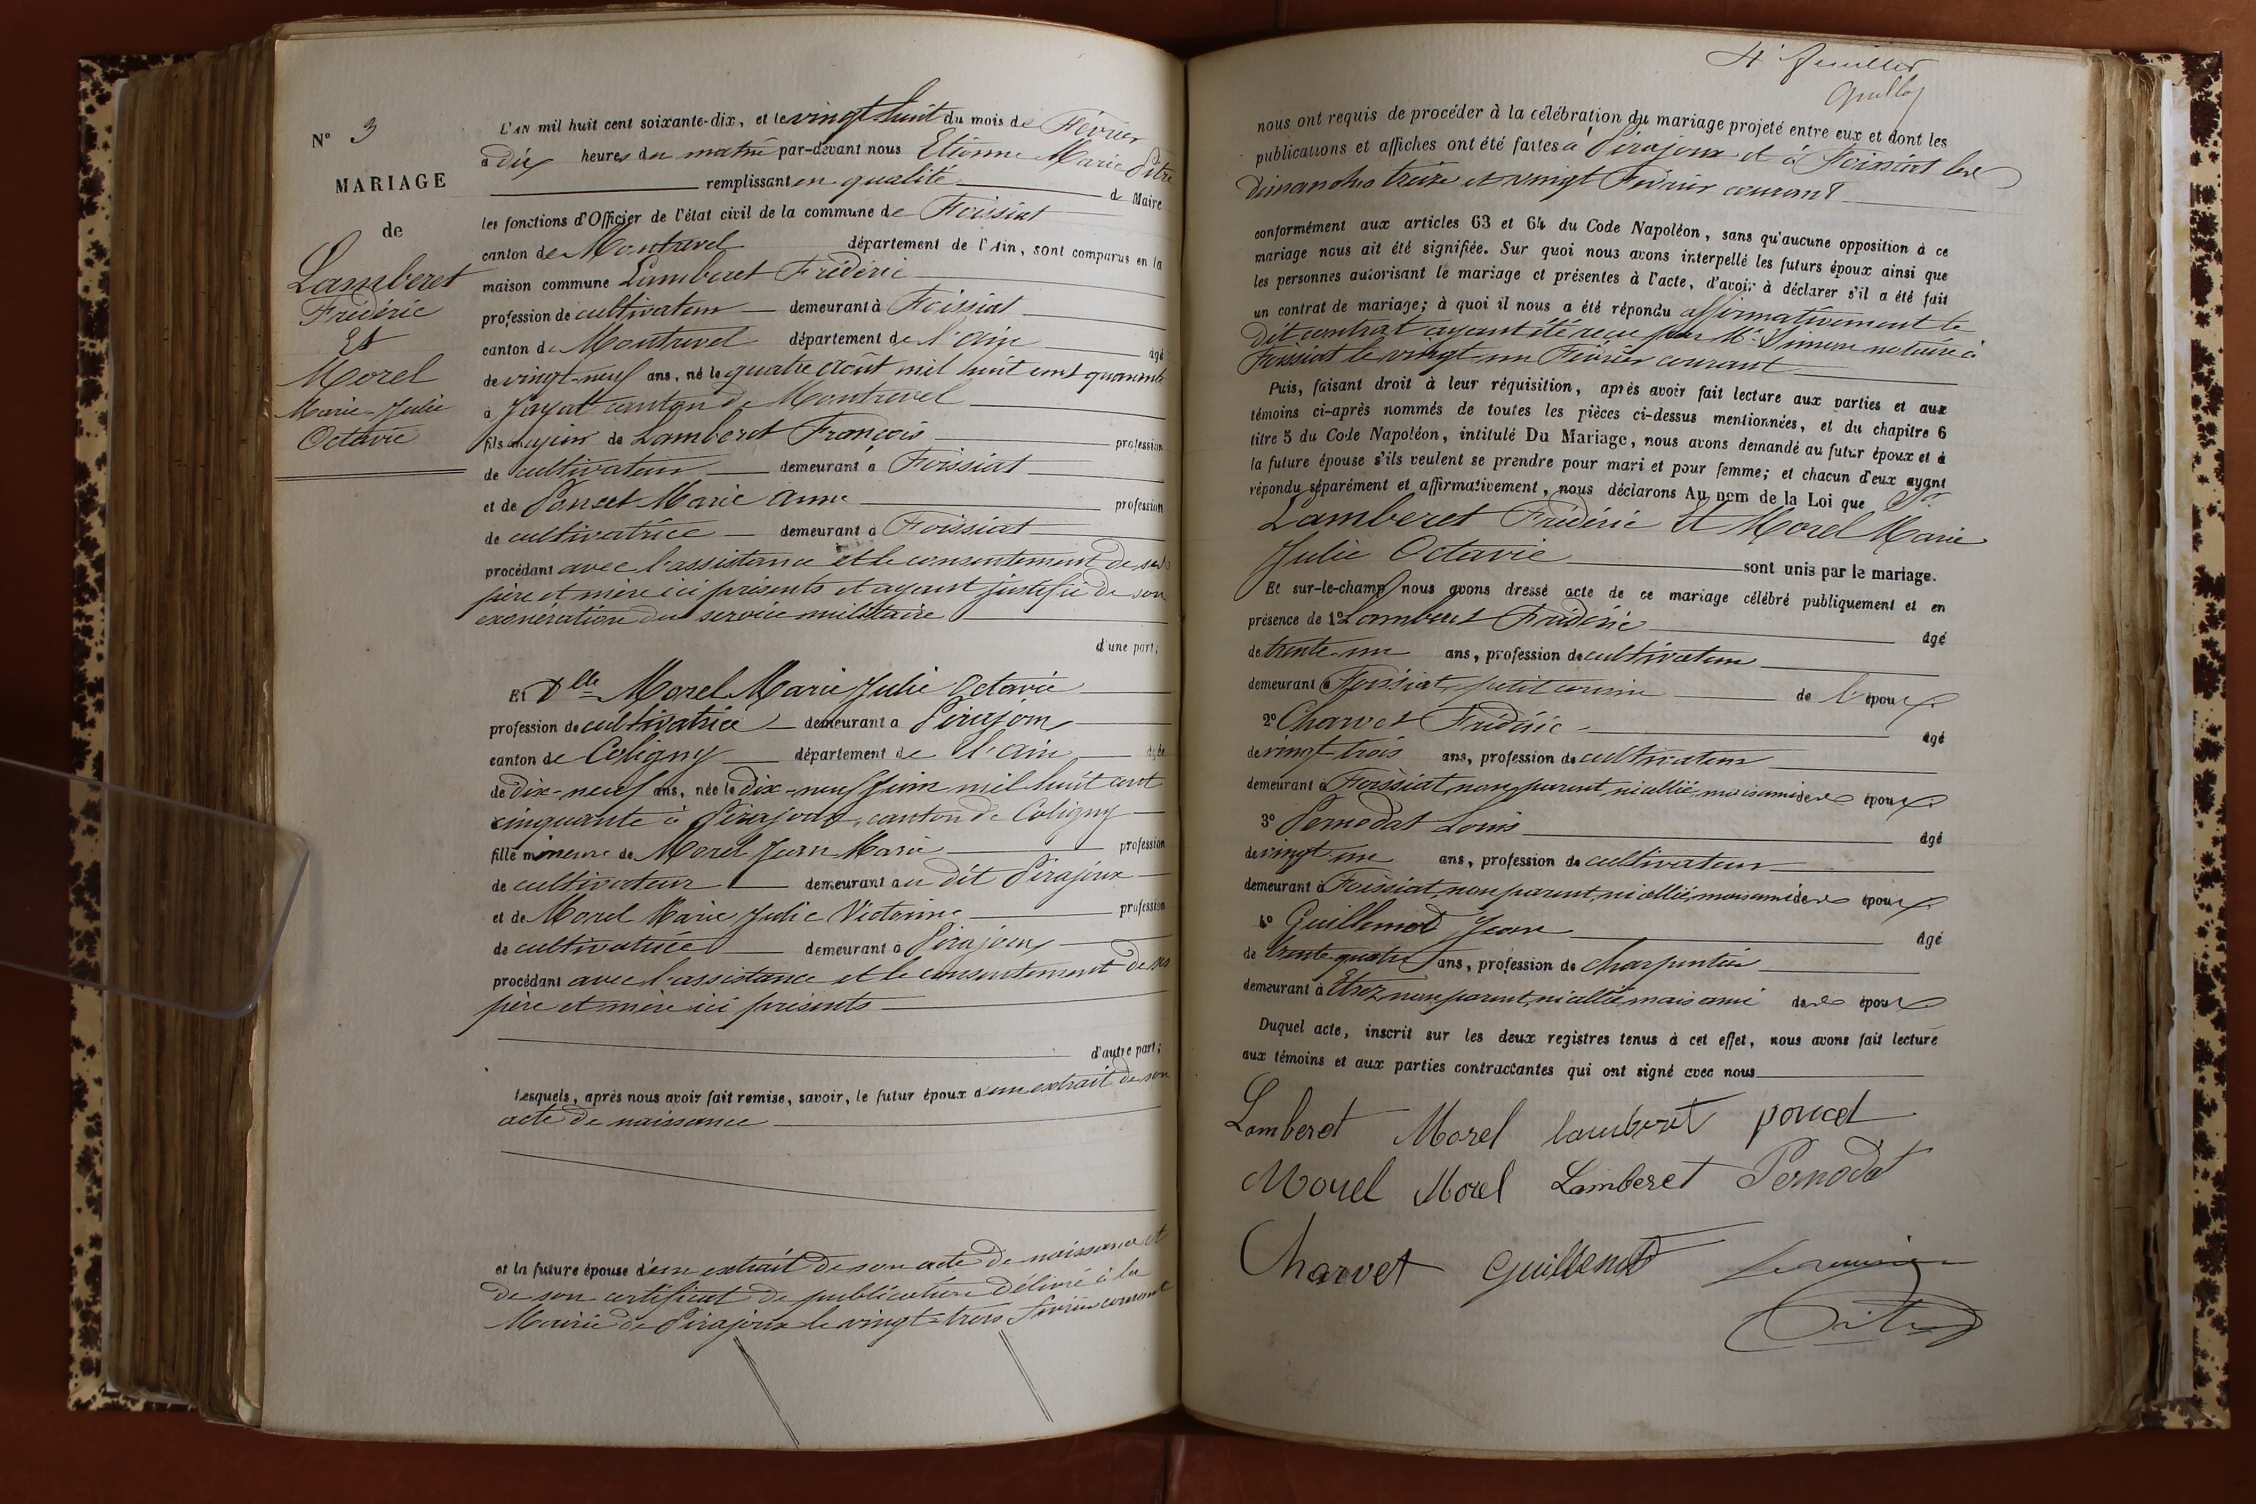 N° 3
MARIAGE
de
Lamberet
Frédéric
Et
Morel
Marie-Julie
Octavie
L'AN mil huit cent soixante-dix, et le vingt huit du mois de Février
à dix heures du matin par-devant nous Etienne Marie Pitre
remplissant en qualité de Maire
les fonctions d'Officier de l'état civil de la commune de Foissiat
canton de Montrevel département de l'Ain, sont comparus en la
maison commune Lamberet Frédéric
profession de cultivateur demeurant à Foissiat
canton de Montrevel département de l'ain âgé
de vingt-neuf ans, né le quatre août mil huit cent quarante
à Jayat canton de Montrevel
fils majeur de Lamberet François profession
de cultivateur demeurant à Foissiat
et de Poncet Marie Anne profession
de cultivatrice demeurant à Foissiat
procédant avec l'assistance et le consentement de ses
père et mère ici présents et ayant justifié de son
exonération du service militaire
d'une part;
Et Dlle Morel Marie Julie Octavie
profession de cultivatrice demeurant à Pirajoux
canton de Coligny département de l'ain âgée
de dix-neuf ans, née le dix-neuf Juin mil huit cent
cinquante à Pirajoux, canton de Coligny
fille mineure de Morel Jean Marie profession
de cultivateur demeurant au dit Pirajoux
et de Morel Marie Julie Victorine profession
de cultivatrice demeurant à Pirajoux
procédant avec l'assistance et le consentement de ses
père et mère ici présents
d'autre part;
Lesquels, après nous avoir fait remise, savoir, le futur époux d'un extrait de son
acte de naissance
et la future épouse d'un extrait de son acte de naissance et
de son certificat de publication délivré à la
Mairie de Pirajoux le vingt-trois Février courant
4e feuillet
nous ont requis de procéder à la célébration du mariage projeté entre eux et dont les
publications et affiches ont été faites à Pirajoux et à Foissiat les
dimanches treize et vingt Février courant
conformément aux articles 63 et 64 du Code Napoléon, sans qu'aucune opposition à ce
mariage nous ait été signifiée. Sur quoi nous avons interpellé les futurs époux ainsi que
les personnes autorisant le mariage et présentes à l'acte, d'avoir à déclarer s'il a été fait
un contrat de mariage; à quoi il nous a été répondu affirmativement le
dit contrat ayant été reçu par Me notaire à
Foissiat le vingt un Février courant
Puis, faisant droit à leur réquisition, après avoir fait lecture aux parties et aux
témoins ci-après nommés de toutes les pièces ci-dessus mentionnées, et du chapitre 6
titre 5 du Code Napoléon, intitulé Du Mariage, nous avons demandé au futur époux et à
la future épouse s'ils veulent se prendre pour mari et pour femme; et chacun d'eux ayant
répondu séparément et affirmativement, nous déclarons Au nom de la Loi que Sr
Lamberet Frédéric Et Morel Marie
Julie Octavie sont unis par le mariage.
Et sur-le-champ nous avons dressé acte de ce mariage célébré publiquement et en
présence de 1° Lamberet Frédéric âgé
de trente-un ans, profession de cultivateur
demeurant à Foissiat, petit cousin de l'époux
2° Charvet Frédéric âgé
de vingt-trois ans, profession de cultivateur
demeurant à Foissiat, non parent, ni allié, mais ami des époux
3° Pernodat Louis âgé
de vingt-un ans, profession de cultivateur
demeurant à Foissiat, non parent, ni allié, mais ami des époux
4° Guillemot Jean âgé
de trente-quatre ans, profession de charpentier
demeurant à Etrez, non parent, ni allié, mais ami des époux
Duquel acte, inscrit sur les deux registres tenus à cet effet, nous avons fait lecture
aux témoins et aux parties contractantes qui ont signé avec nous
Lamberet Morel lamberet poncet
Morel Morel Lamberet Pernodat
Charvet Guillemot
Pitre